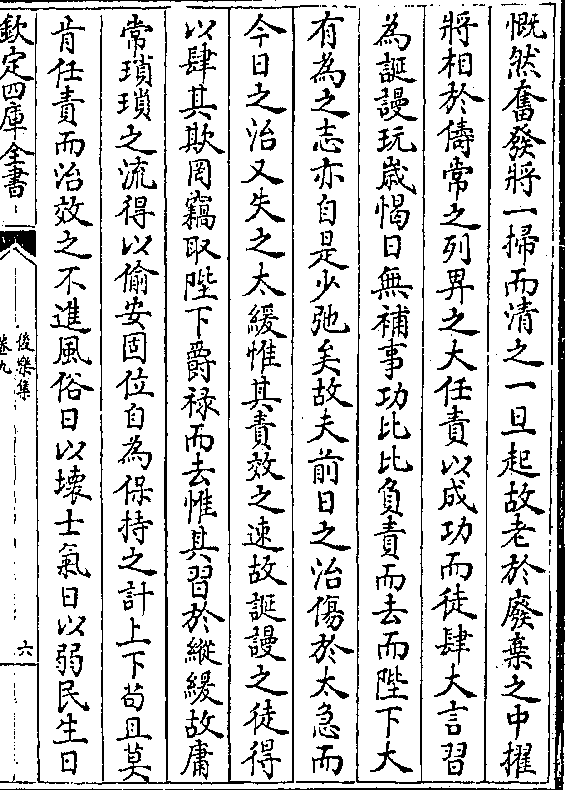 慨然奮發將一掃而清之一旦起故老於廢棄之中擢
將相於儔常之列畀之大任責以成功而徒肆大言習
為誕謾玩歲愒日無補事功比比負責而去而陛下大
有為之志亦自是少弛矣故夫前日之治傷於太急而
今日之治又失之太緩惟其責效之速故誕謾之徒得
以肆其欺罔竊取陛下爵祿而去惟其習於縱緩故庸
常瑣瑣之流得以偷安固位自為保持之計上下苟且莫
肯任責而治效之不進風俗日以壞士氣日以弱民生日
欽定四庫全書
後樂集
卷九
六